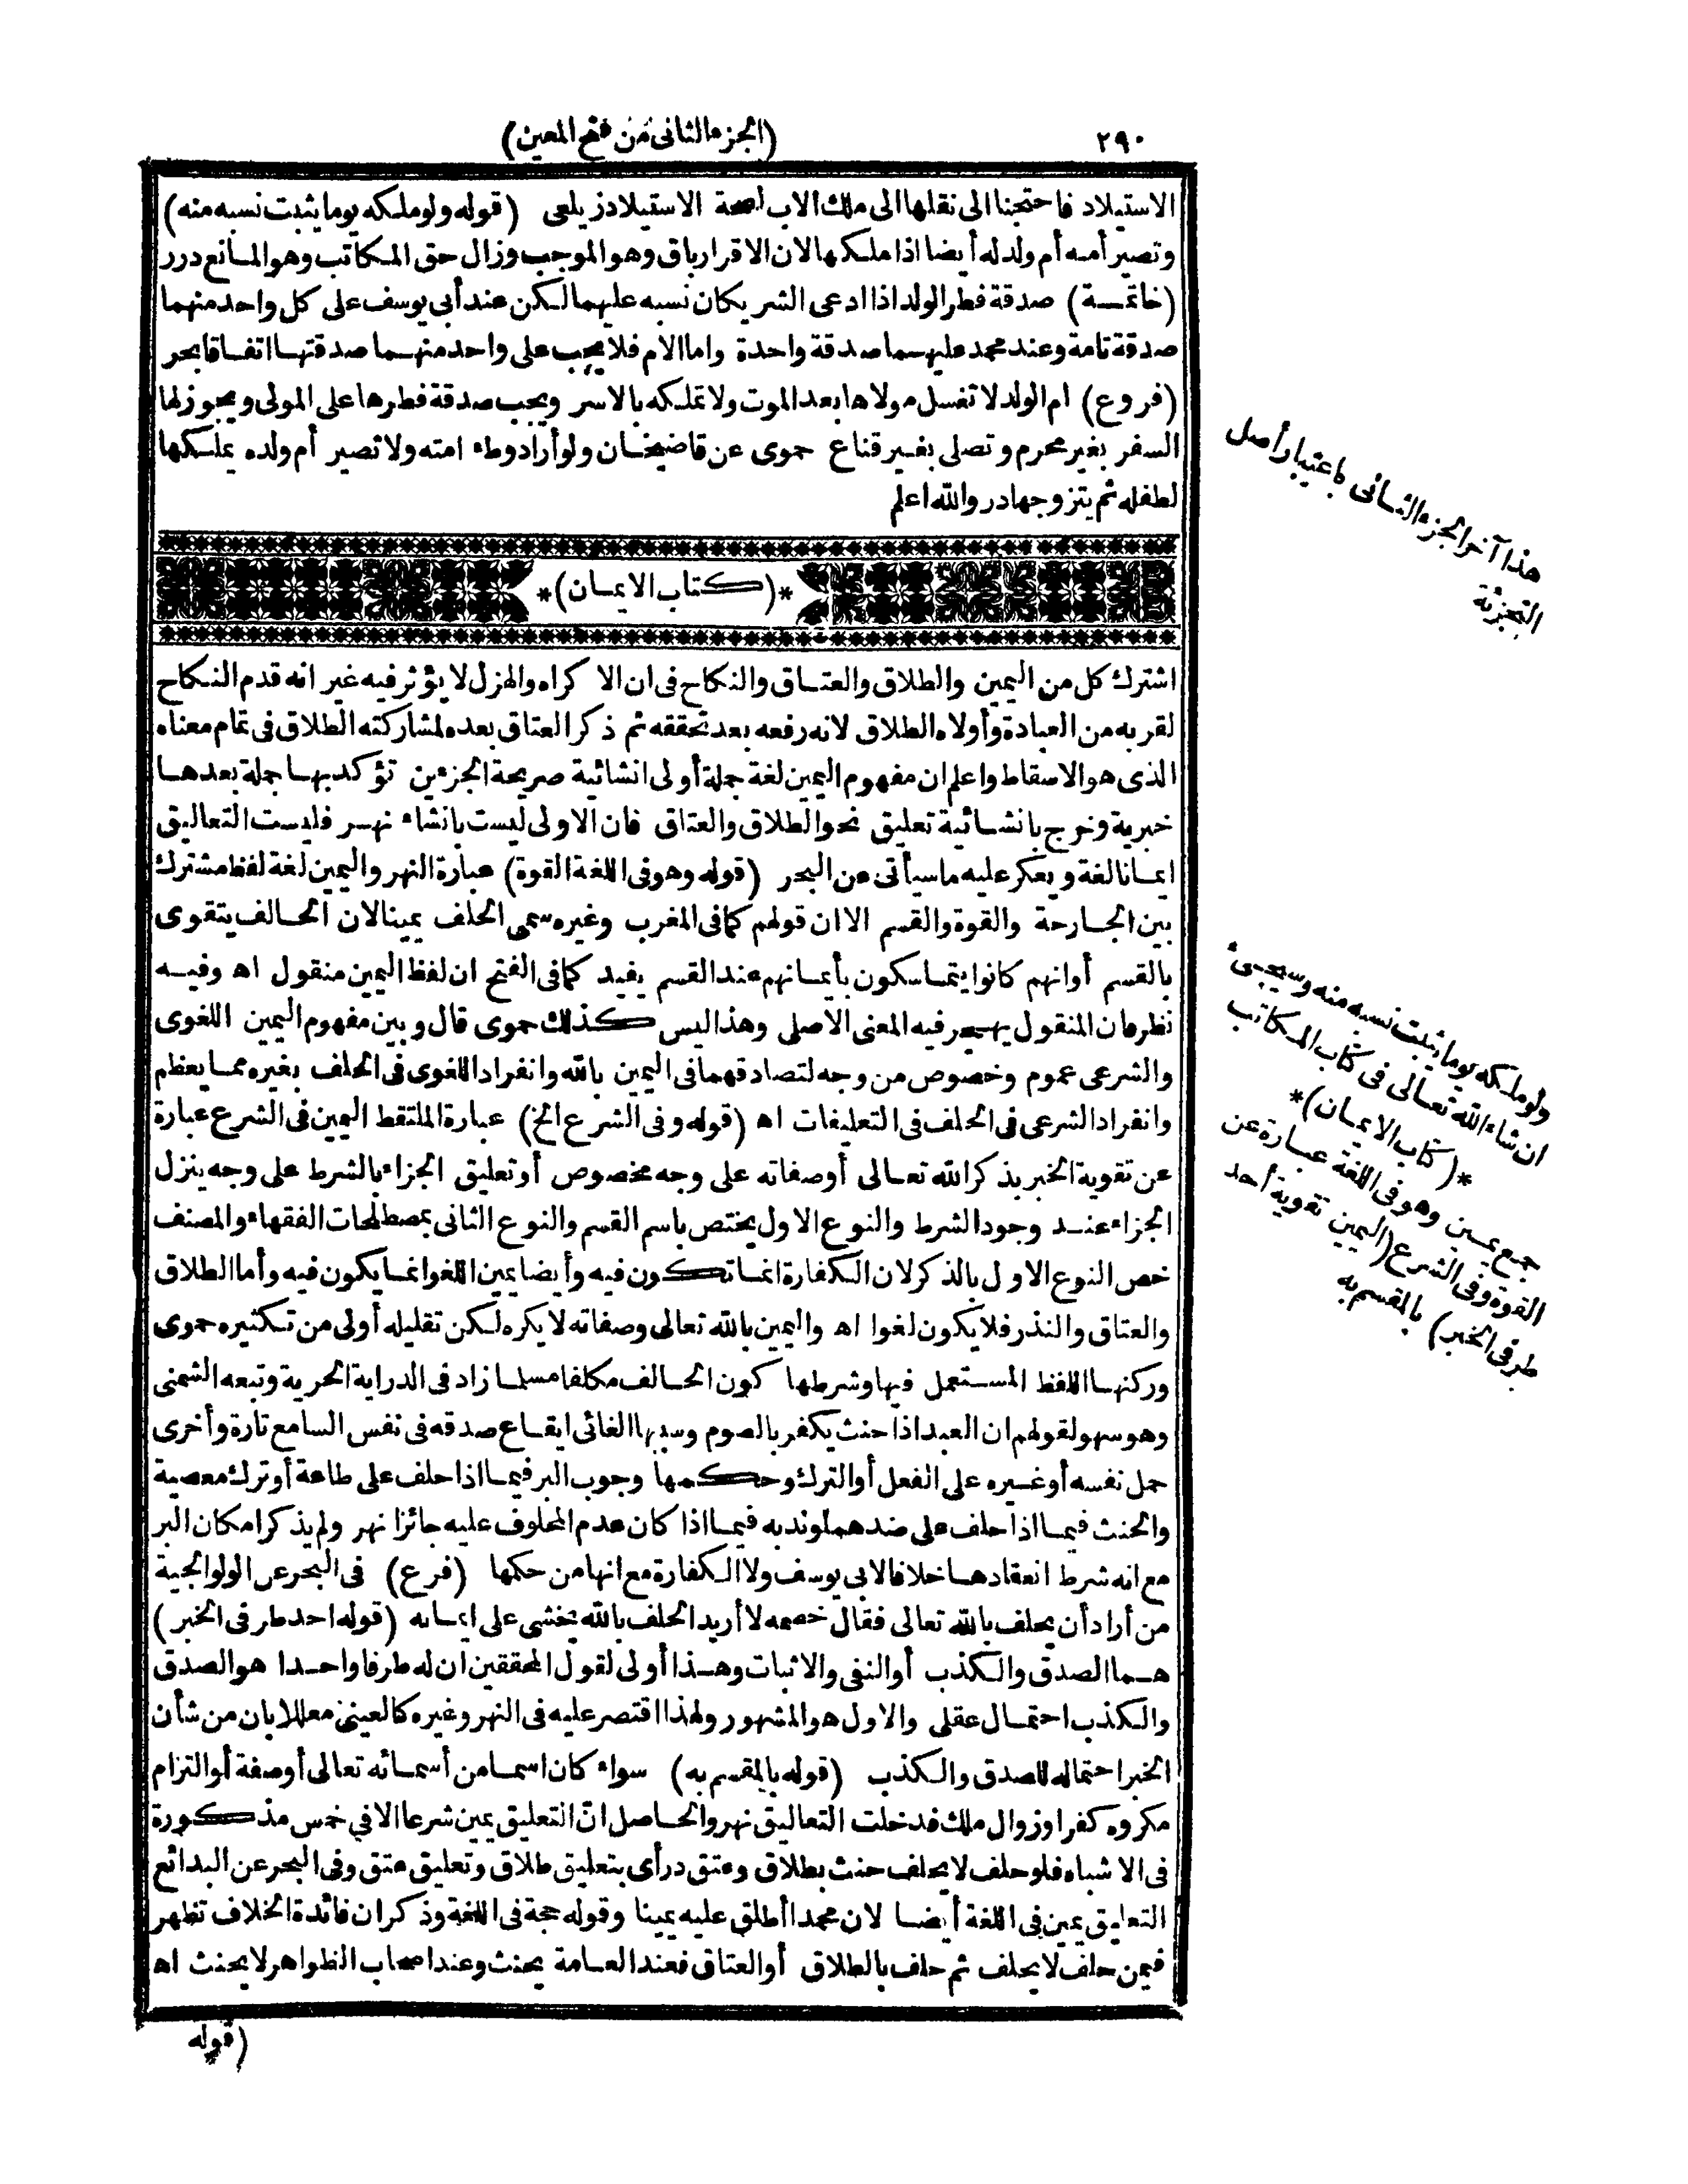 ٢٩٠
(الجزء الثانى من فتح المعين)
الاستيلاد فاحتجنا الى نقلها الى ملك الاب لصحة الاستيلاد زيلعى (قوله ولو ملكه يوما يثبت نسبه منه)
وتصير أمه أم ولد له أيضا اذا ملكها لان الاقرار باق وهو الموجب وزال حق المكاتب وهو المانع درر
(خاتمة) صدقة فطر الولد اذا ادعى الشريكان نسبه عليهما لكن عند أبى يوسف على كل واحد منهما
صدقة تامة وعند محمد عليهما صدقة واحدة واما الام فلا يجب على واحد منهما صدقتها اتفاقا بحر
(فروع) ام الولد لا تغسل مولاها بعد الموت ولا تملكه بالاسر ويجب صدقة فطرها على المولى ويجوز لها
السفر بغير محرم وتصلى بغير قناع حموى عن قاضيخان ولو أراد وطء امته ولا تصير أم ولده يملكها
لطفله ثم يتزوجها در والله اعلم
*(كتاب الايمان)*
اشترك كل من اليمين والطلاق والعتاق والنكاح فى ان الاكراه والهزل لا يؤثر فيه غير انه قدم النكاح
لقربه من العبادة وأولاه الطلاق لانه رفعه بعد تحققه ثم ذكر العتاق بعده لمشاركته الطلاق فى تمام معناه
الذى هو الاسقاط واعلم ان مفهوم اليمين لغة جملة أولى انشائية صريحة الجزءين تؤكد بها جملة بعدها
خبرية وخرج بانشائية تعليق نحو الطلاق والعتاق فان الاولى ليست بانشاء نهر فليست التعاليق
ايمانا لغة ويعكر عليه ما سيأتى عن البحر (قوله وهو فى اللغة القوة) عبارة النهر واليمين لغة لفظ مشترك
بين الجارحة والقوة والقسم الا ان قولهم كما فى المغرب وغيره سمى الحلف يمينا لان الحالف يتقوى
بالقسم أو انهم كانوا يتماسكون بأيمانهم عند القسم يفيد كما فى الفتح ان لفظ اليمين منقول اه وفيه
نظر فان المنقول يهجر فيه المعنى الاصلى وهذا ليس كذلك حموى قال وبين مفهوم اليمين اللغوى
والشرعى عموم وخصوص من وجه لتصادقهما فى اليمين بالله وانفراد اللغوى فى الحلف بغيره مما يعظم
وانفراد الشرعى فى الحلف فى التعليقات اه (قوله وفى الشرع الخ) عبارة الملتقط اليمين فى الشرع عبارة
عن تقوية الخبر بذكر الله تعالى أو صفاته على وجه مخصوص أو تعليق الجزاء بالشرط على وجه ينزل
الجزاء عند وجود الشرط والنوع الاول يختص باسم القسم والنوع الثانى بمصطلحات الفقهاء والمصنف
خص النوع الاول بالذكر لان الكفارة انما تكون فيه وأيضا يمين اللغو انما يكون فيه وأما الطلاق
والعتاق والنذر فلا يكون لغوا اه واليمين بالله تعالى وصفاته لا يكره لكن تقليله أولى من تكثيره حموى
وركنها اللفظ المستعمل فيها وشرطها كون الحالف مكلفا مسلما زاد فى الدراية الحرية وتبعه الشمنى
وهو سهو لقولهم ان العبد اذا حنث يكفر بالصوم وسببها الغائى ايقاع صدقه فى نفس السامع تارة وأخرى
حمل نفسه أو غيره على الفعل أو الترك وحكمها وجوب البر فيما اذا حلف على طاعة أو ترك معصية
والحنث فيما اذا حلف على ضدهما وندبه فيما اذا كان عدم المحلوف عليه جائزا نهر ولم يذكر امكان البر
مع انه شرط انعقادها خلافا لابى يوسف ولا الكفارة مع انها من حكمها (فرع) فى البحر عن الولوالجية
من أراد أن يحلف بالله تعالى فقال خصمه لا أريد الحلف بالله يخشى على ايمانه (قوله احد طرفى الخبر)
هما الصدق والكذب أو النفى والاثبات وهذا أولى لقول المحققين ان له طرفا واحدا هو الصدق
والكذب احتمال عقلى والاول هو المشهور ولهذا اقتصر عليه فى النهر وغيره كالعينى معللا بان من شأن
الخبر احتماله للصدق والكذب (قوله بالمقسم به) سواء كان اسما من أسمائه تعالى أو صفة أو التزام
مكروه كفر او زوال ملك فدخلت التعاليق نهر والحاصل ان التعليق يمين شرعا الا فى خمس مذكورة
فى الاشباه فلو حلف لا يحلف حنث بطلاق وعتق در أى بتعليق طلاق وتعليق عتق وفى البحر عن البدائع
التعليق يمين فى اللغة أيضا لان محمدا أطلق عليه يمينا وقوله حجة فى اللغة وذكر ان فائدة الخلاف تظهر
فيمن حلف لا يحلف ثم حلف بالطلاق أو العتاق فعند العامة يحنث وعند اصحاب الظواهر لا يحنث اه
(قوله
هذا آخر الجزء الثانى باعتبار أصل
التجزئة
ولو ملكه يوما يثبت نسبه منه وسيجىء
ان شاء الله تعالى فى كتاب المكاتب
*(كتاب الايمان)*
جمع يمين وهو فى اللغة عبارة عن
القوة وفى الشرع (اليمين تقوية أحد
طرفى الخبر) بالمقسم به